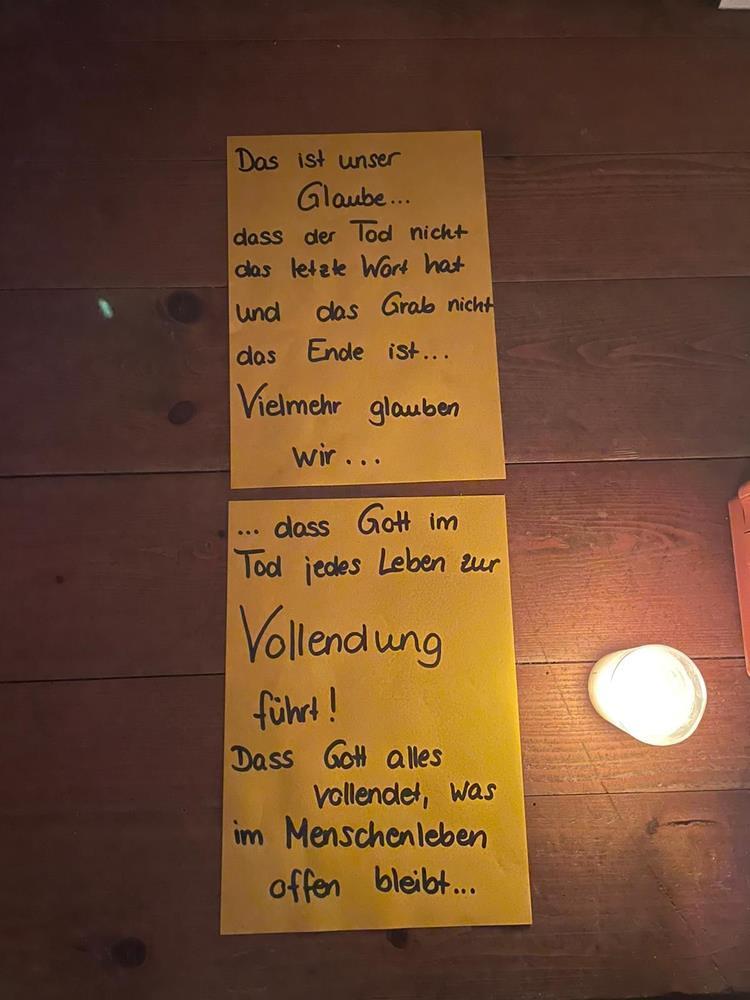 Das ist unser
Glaube...
dass der Tod nicht
das letzte Wort hat
und das Grab nicht
das Ende ist...
Vielmehr glauben
wir...
... dass Gott im
Tod jedes Leben zur
Vollendung
führt!
Dass Gott alles
vollendet, was
im Menschenleben
offen bleibt...